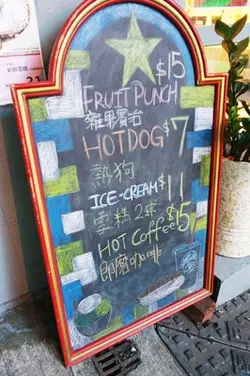 $15
FRUIT PUNCH
雜果賓治
HOTDOG $7
熱狗
ICE-CREAM $11
雪糕2球
HOT Coffee $5
即磨咖啡
21